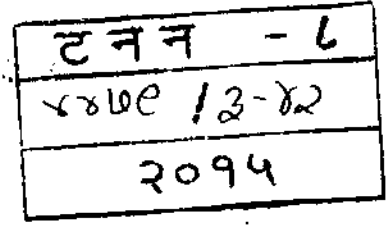 टनन - ८
४४७९ / ३-४२
२०१५